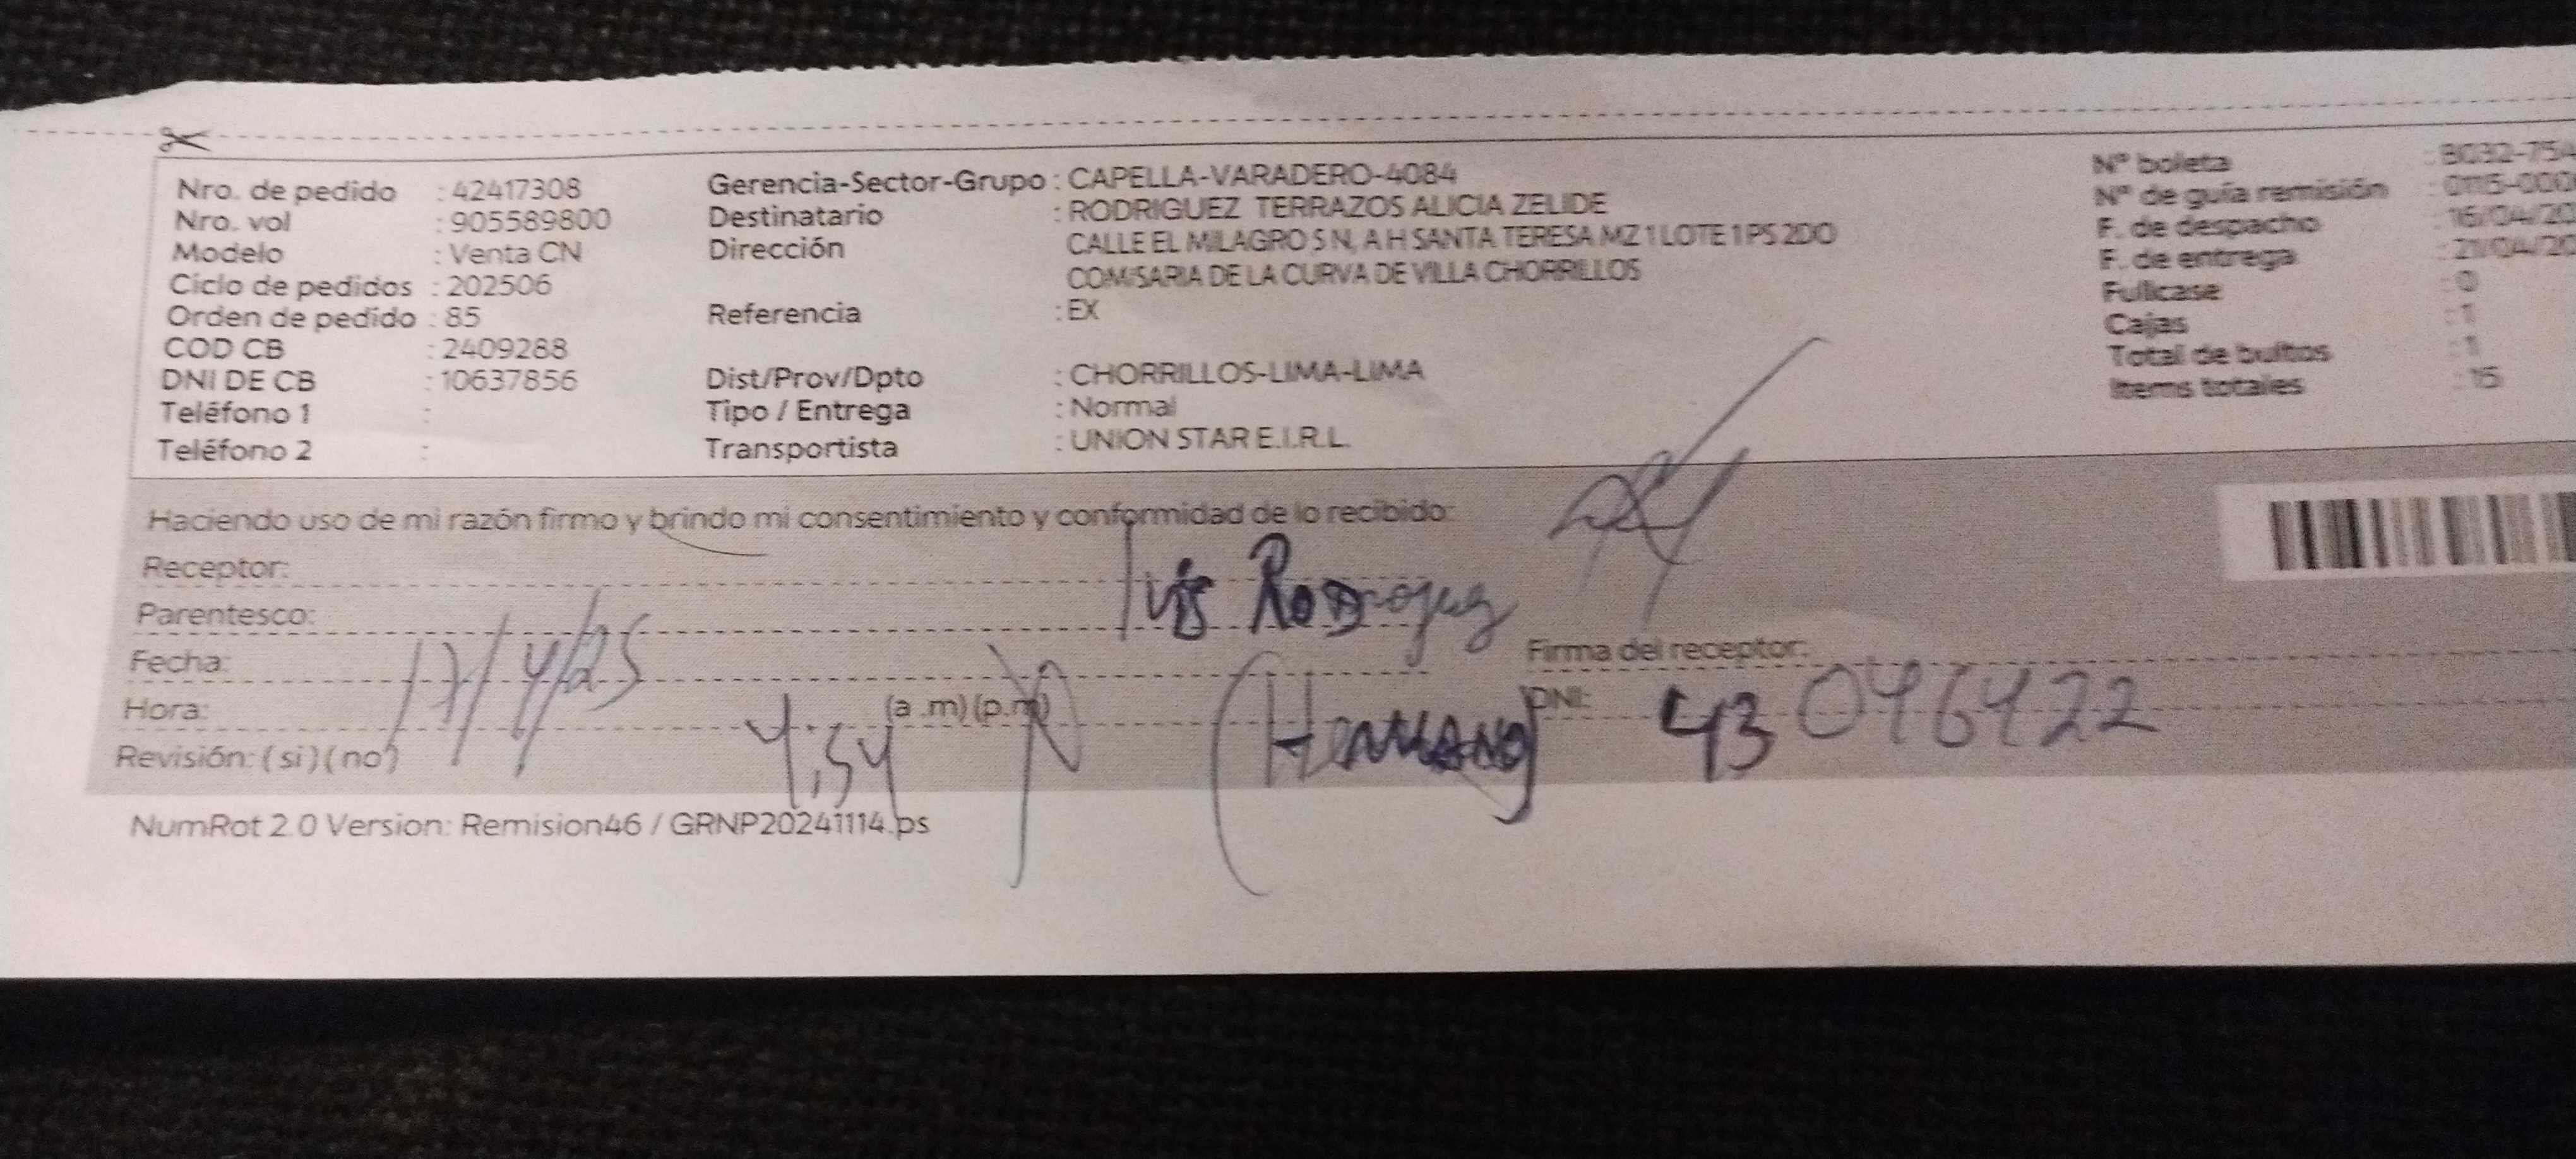 Nro. de pedido : 42417308
Nro. vol : 905589800
Modelo : Venta CN
Ciclo de pedidos : 202506
Orden de pedido : 85
COD CB : 2409288
DNI DE CB : 10637856
Teléfono 1 :
Teléfono 2 :
Gerencia-Sector-Grupo : CAPELLA-VARADERO-4084
Destinatario : RODRIGUEZ TERRAZOS ALICIA ZELIDE
Dirección CALLE EL MILAGRO S N, A H SANTA TERESA MZ 1 LOTE 1 PS 2DO
COMISARIA DE LA CURVA DE VILLA CHORRILLOS
Referencia : EX
Dist/Prov/Dpto : CHORRILLOS-LIMA-LIMA
Tipo / Entrega : Normal
Transportista : UNION STAR E.I.R.L.
Nº boleta : B032-754
Nº de guía remisión : 0115-000
F. de despacho : 16/04/20
F. de entrega : 21/04/20
Fullcase : 0
Cajas : 1
Total de bultos : 1
Items totales : 15
Haciendo uso de mi razón firmo y brindo mi consentimiento y conformidad de lo recibido:
Receptor:
Luis Rodriguez
Parentesco:
Firma del receptor:
Fecha: 17/4/25
Hora: 4:54 (a .m) (p.m)
(Hermano)
DNI: 43046422
Revisión: ( si ) ( no )
NumRot 2.0 Version: Remision46 / GRNP20241114.ps